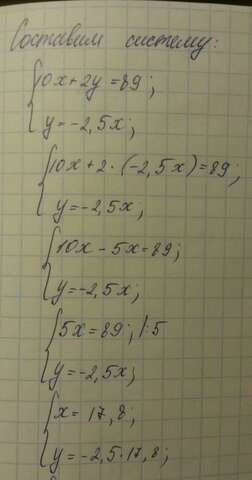 Составим систему:
10x+2y=89;
y=-2,5x;
10x+2·(-2,5x)=89;
y=-2,5x;
10x-5x=89;
y=-2,5x;
5x=89; /:5
y=-2,5x;
x=17,8;
y=-2,5·17,8;